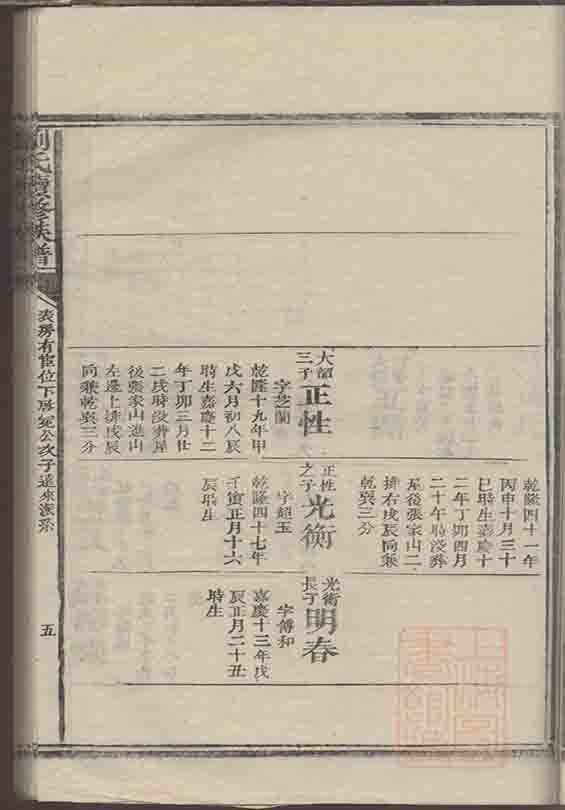 乾隆四十一年
丙申十月三十
巳時生嘉慶十
二年丁卯四月
二十午時没葬
屋後張家山二
排右戌辰向兼
乾巽三分
大韶
三子
正性
字芝蘭
乾隆十九年甲
戌六月初八辰
時生嘉慶十二
年丁卯三月廿
二戌時没葬屋
後張家山進山
左邊上排戌辰
向兼乾巽三分
正性
之子
光衡
字超玉
乾隆四十七年
壬寅正月十六
辰時生
光衡
長子
明春
字傅和
嘉慶十三年戊
辰正月二十丑
時生
劉氏續修族譜
房有宦位下公次子達來派系
五